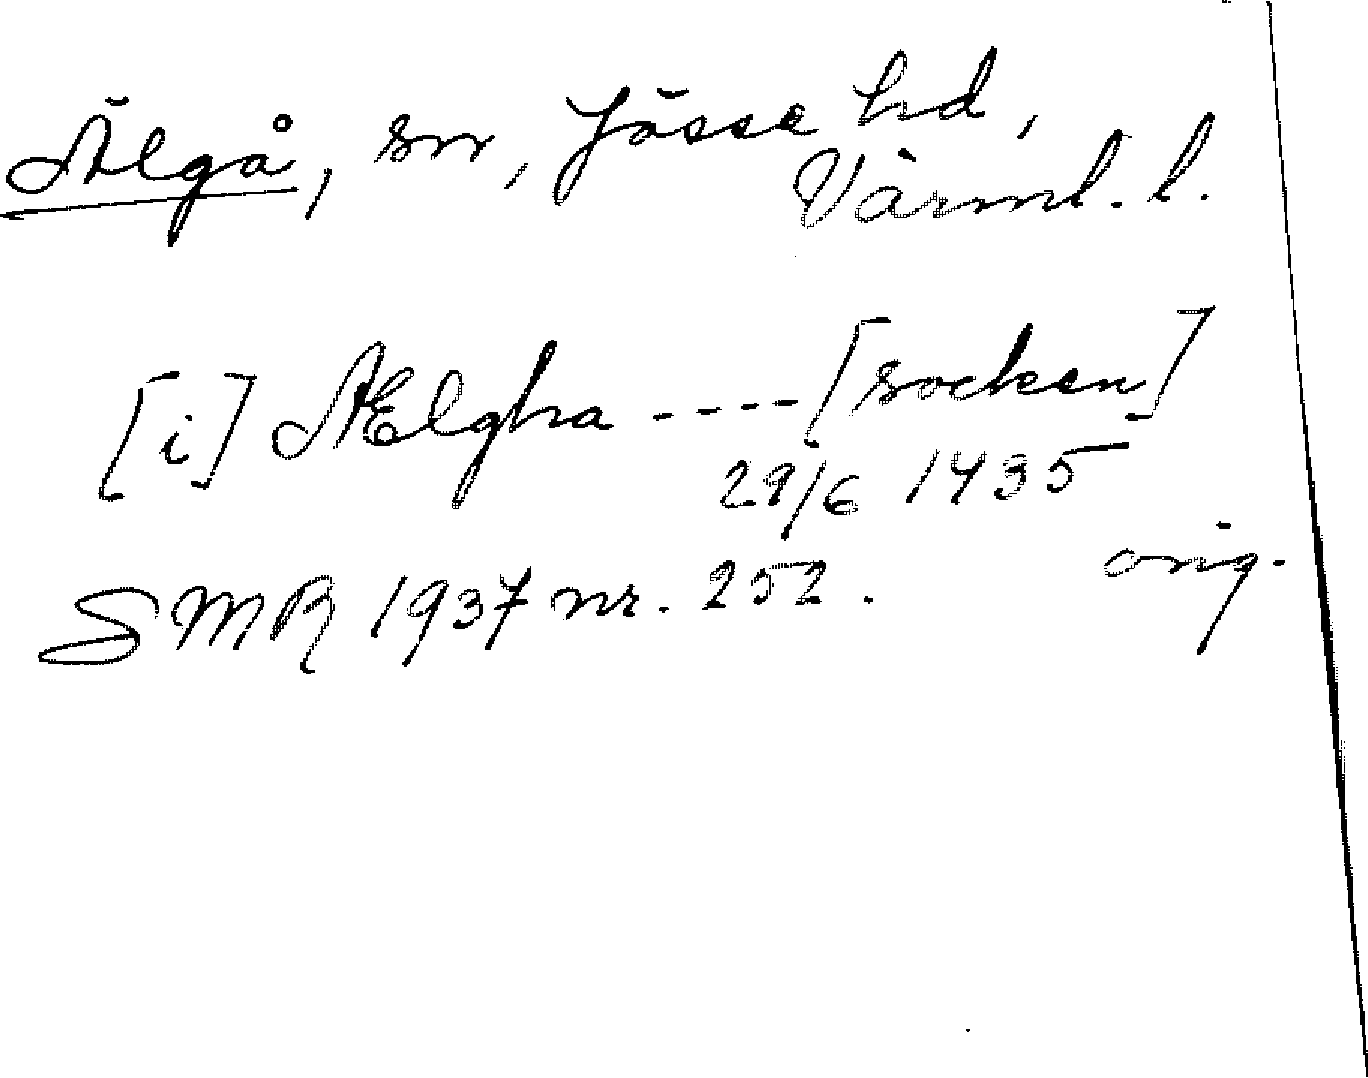 Älgå, sn, Jösse hd,
Värml. l.
[i] Ælgha ---- [socken]
29/6 1435
orig.
SMR 1937 nr. 252.